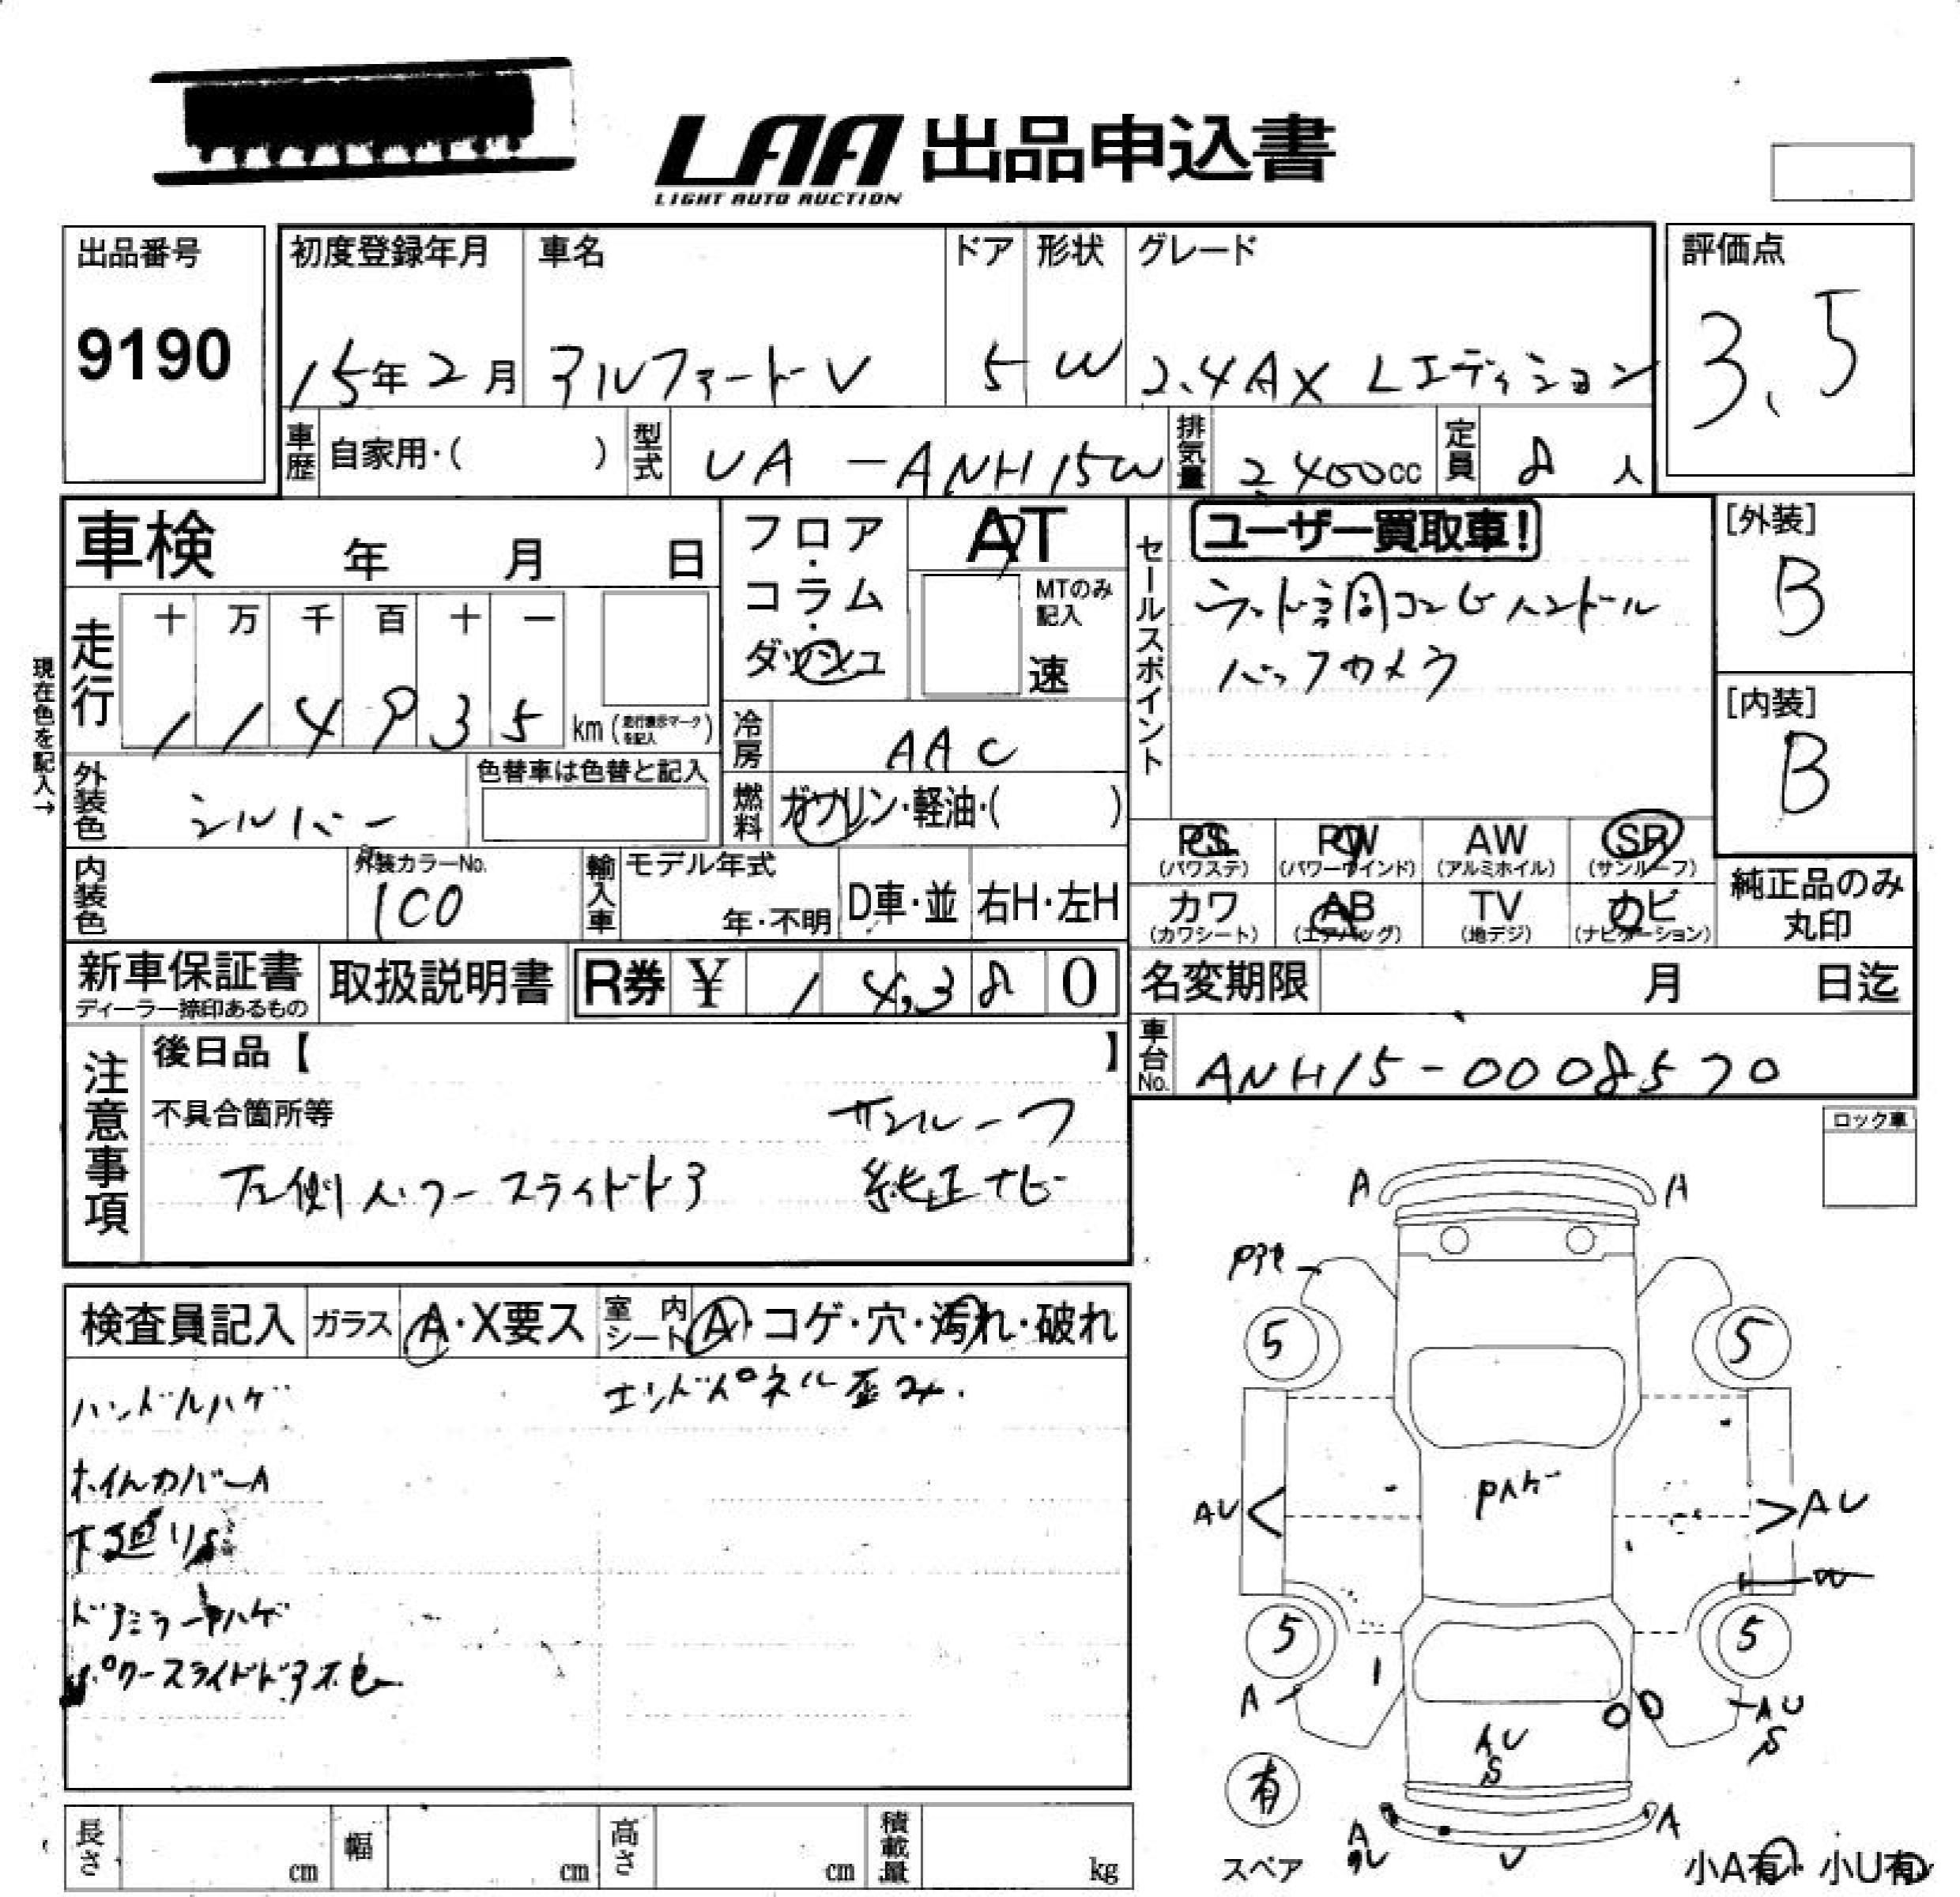 LAA 出品申込書
LIGHT AUTO AUCTION
出品番号
9190
初度登録年月
15年2月
車名
アルファードV
ドア
5
形状
W
グレード
2.4AX Lエディション
評価点
3.5
車歴 自家用・( )
型式 UA -ANH15W
排気量 2,400cc
定員 8人
車検 年 月 日
フロア・コラム・ダッシュ
AT
MTのみ記入
速
セールスポイント
ユーザー買取車!
ウッド調コンビハンドル
バックカメラ
[外装]
B
[内装]
B
現在色を記入→
走行
十 万 千 百 十 一
1 1 4 9 3 5 km (走行表示マークを記入)
冷房 AAC
外装色 シルバー
色替車は色替と記入
燃料 ガソリン・軽油・( )
PS (パワステ)
PW (パワーウインド)
AW (アルミホイル)
SR (サンルーフ)
カワ (カワシート)
AB (エアバッグ)
TV (地デジ)
ナビ (ナビゲーション)
純正品のみ丸印
内装色
外装カラーNo.
1C0
輸入車
モデル年式
年・不明
D車・並
右H・左H
新車保証書
ディーラー捺印あるもの
取扱説明書
R券 ¥ 14,380
名変期限 月 日迄
車台No. ANH15-0008570
注意事項
後日品【 】
不具合箇所等
サンルーフ
左側パワースライドドア 純正ナビ
ロック車
検査員記入
ガラス A・X要ス
室内シート A・コゲ・穴・汚れ・破れ
ハンドルハゲ
エンドパネル歪み.
ホイルカバーA
下廻りS
ドアミラーPハゲ
パワースライドドア不良
A A
5 5
Pハゲ
AU AU
W
5 5
A AU
S
AU
S
有
スペア
A
A
U
小A有・小U有
長さ cm
幅 cm
高さ cm
積載量 kg